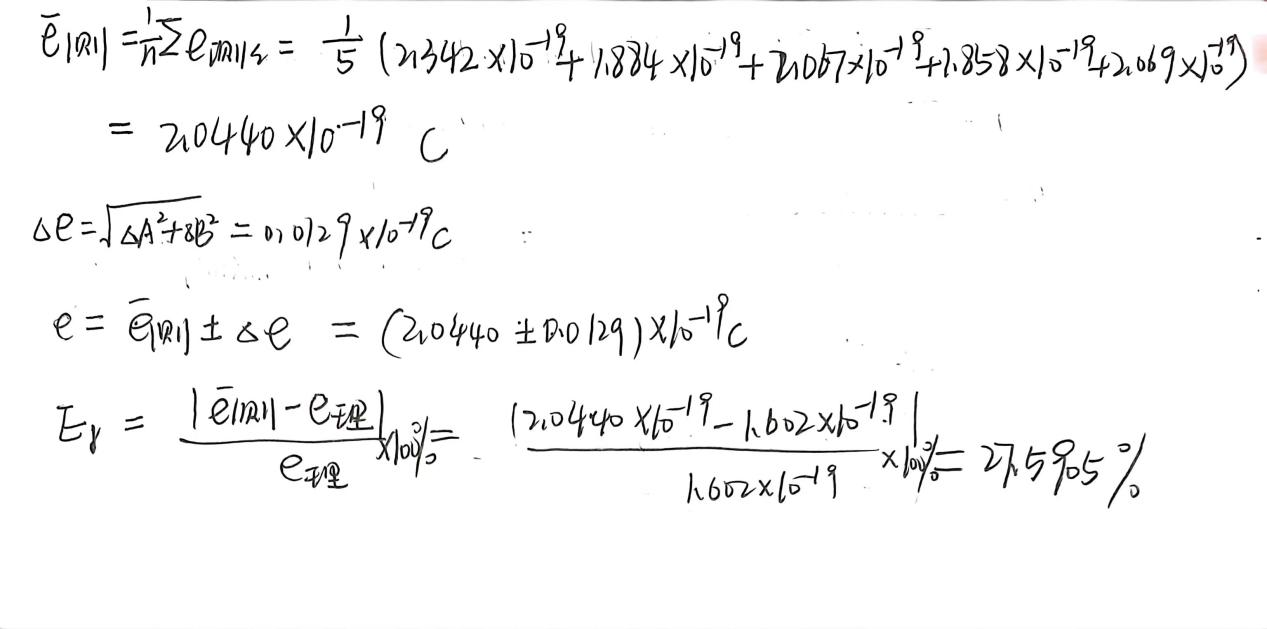 ē测 = 1/n Σe测i = 1/5 (2.342×10⁻¹⁹ + 1.884×10⁻¹⁹ + 2.067×10⁻¹⁹ + 1.858×10⁻¹⁹ + 2.069×10⁻¹⁹)
= 2.0440×10⁻¹⁹ C
Δe = √(ΔA²+ΔB²) = 0.0129×10⁻¹⁹ C
e = ē测 ± Δe = (2.0440 ± 0.0129)×10⁻¹⁹ C
Eᵣ = |ē测 - e理| / e理 ×100% = |2.0440×10⁻¹⁹ - 1.602×10⁻¹⁹| / 1.602×10⁻¹⁹ ×100% = 27.5905%